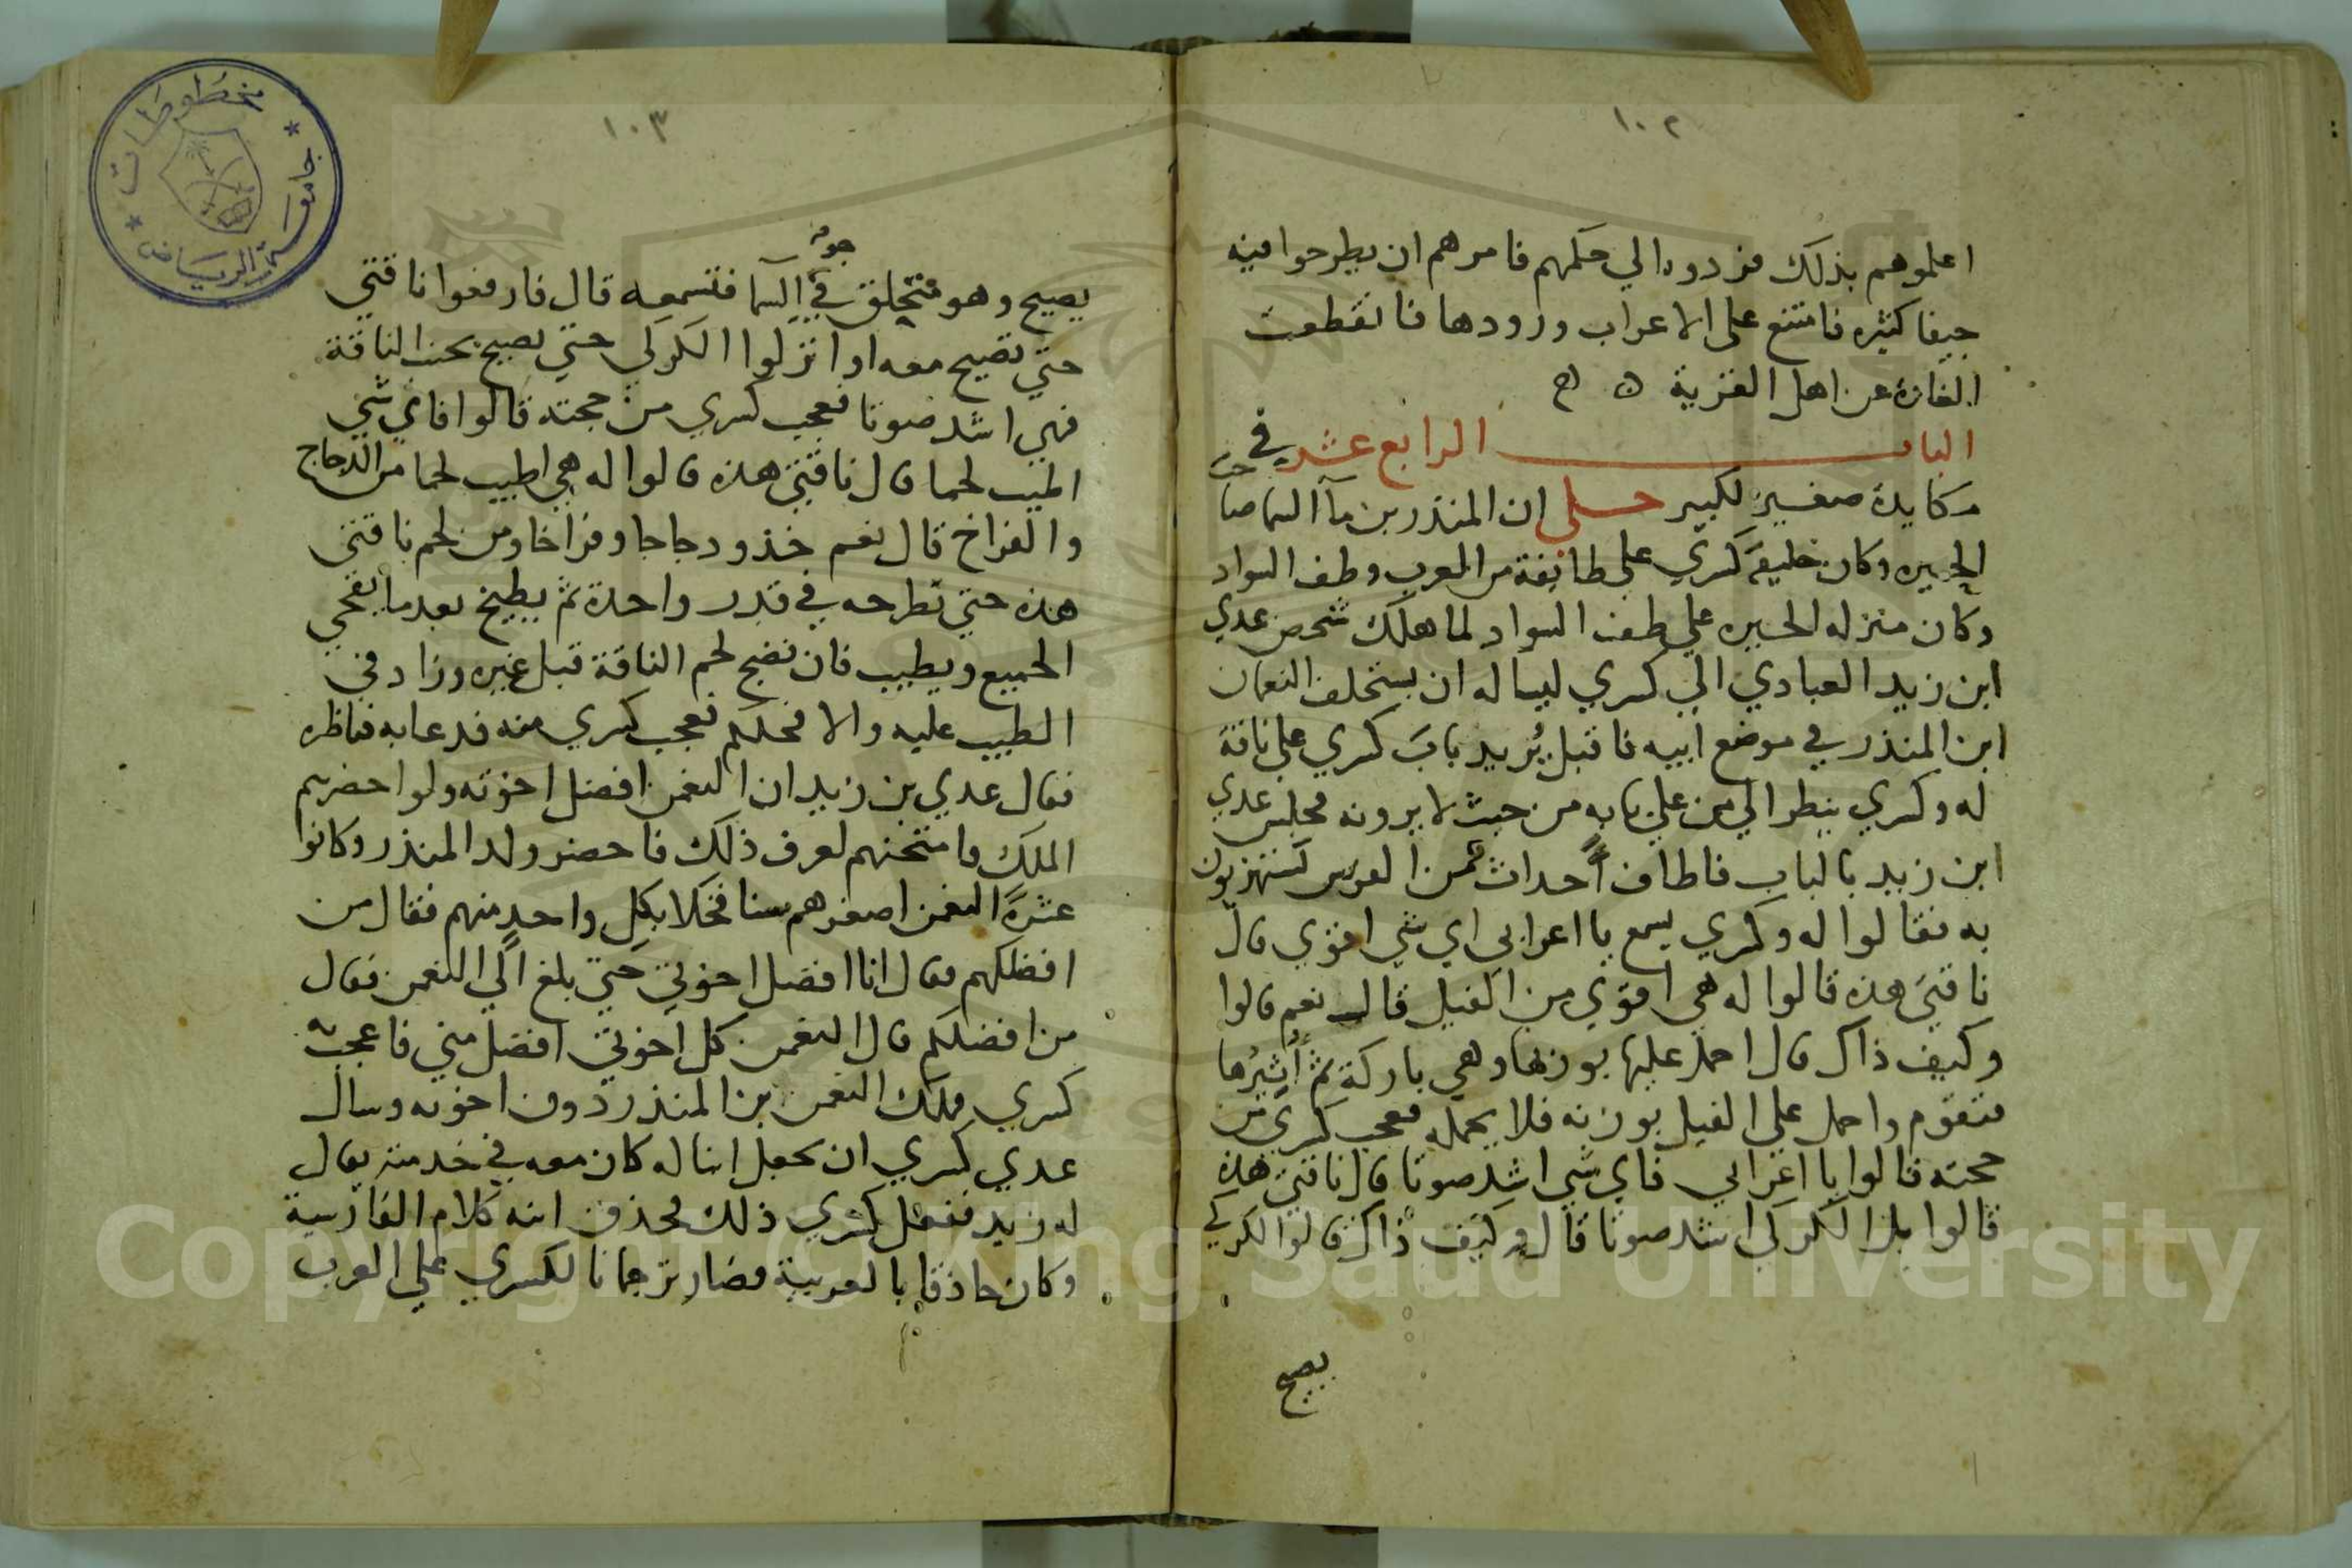 ١٠٢
اعلموهم بذلك فردوه الي حكمهم فامرهم ان يطرحوا فيه
جيفا كثيره فامتنع على الاعراب ورودها فانقطعت
الغارة عن اهل القرية ه ه
الباب الرابع عشر في
مكايدة صغير لكبير حكي ان المنذر بن مآ السما صاحب
الحيره وكان خليفة كسري علي طائفة من العرب وطف السواد
وكان منزله الحيره علي طف السواد لما هلك شخص عدي
ابن زيد العبادي الي كسري ليساله ان يستخلف النعمان
ابن المنذر في موضع ابيه فاقبل يُريد بابَ كسري علي ناقة
له وكسري ينظر الي من علي بابه من حيث لا يرونه فجلس عدي
ابن زيد بالباب فاطاف احداث من الفرس يستهزيون
به فقالوا له وكسري يسمع يا اعرابي اي شي اقوي قال
ناقتي هذه قالوا له هي اقوي من الفيل قال نعم قالوا
وكيف ذاك قال احمل عليها بوزنها وهي باركة ثم أُثيرُها
فتقوم واحمل علي الفيل بوزنه فلا يحمله فعجب كسري من
حجته قالوا يا اعرابي فاي شي اشد صوتا قال ناقتي هذه
قالوا بل الكركي اشد صوتا قال وكيف ذاك قالوا الكركي
يصيح
١٠٣
جو
يصيح وهو متحلق في السما فتسمعه قال فارفعوا ناقتي
حتي تصيح معه او انزلوا الكركي حتي يصيح بحذا الناقة
فهي اشد صوتا فعجب كسري من حجته قالوا فاي شي
اطيب لحما قال ناقتي هذه قالوا له هي اطيب لحما من الدجاج
والفراخ قال نعم خذو دجاجا وفراخا ومن لحم ناقتي
هذه حتي نطرحه في قدر واحدة ثم يطبخ بعدما
الجميع ويطيب فان نضج لحم الناقة قبل غيره وزاد في
الطيب عليه والا فحكم فعجب كسري منه فدعا به فناظره
فقال عدي بن زيد ان النعمن افضل اخوته ولو احضرهم
الملك وامتحنهم لعرف ذلك فاحضر ولد المنذر وكانوا
عشرة النعمن اصغرهم سنا فخلا بكل واحد منهم فقال من
افضلكم فقال انا افضل اخوتي حتي بلغ الي النعمن فقال
من افضلكم قال النعمن كل اخوتي افضل مني فاعجب به
كسري فملك النعمن بن المنذر دون اخوته وسال
عدي كسري ان يجعل ابنا له كان معه في خدمته يقال
له زيد ففعل كسري ذلك فحذق ابنه كلام الفارسية
وكان حاذقا بالعربية فصار ترجمانا لكسري علي العرب
مخطوطات
جامعة الرياض
Copyright © King Saud University